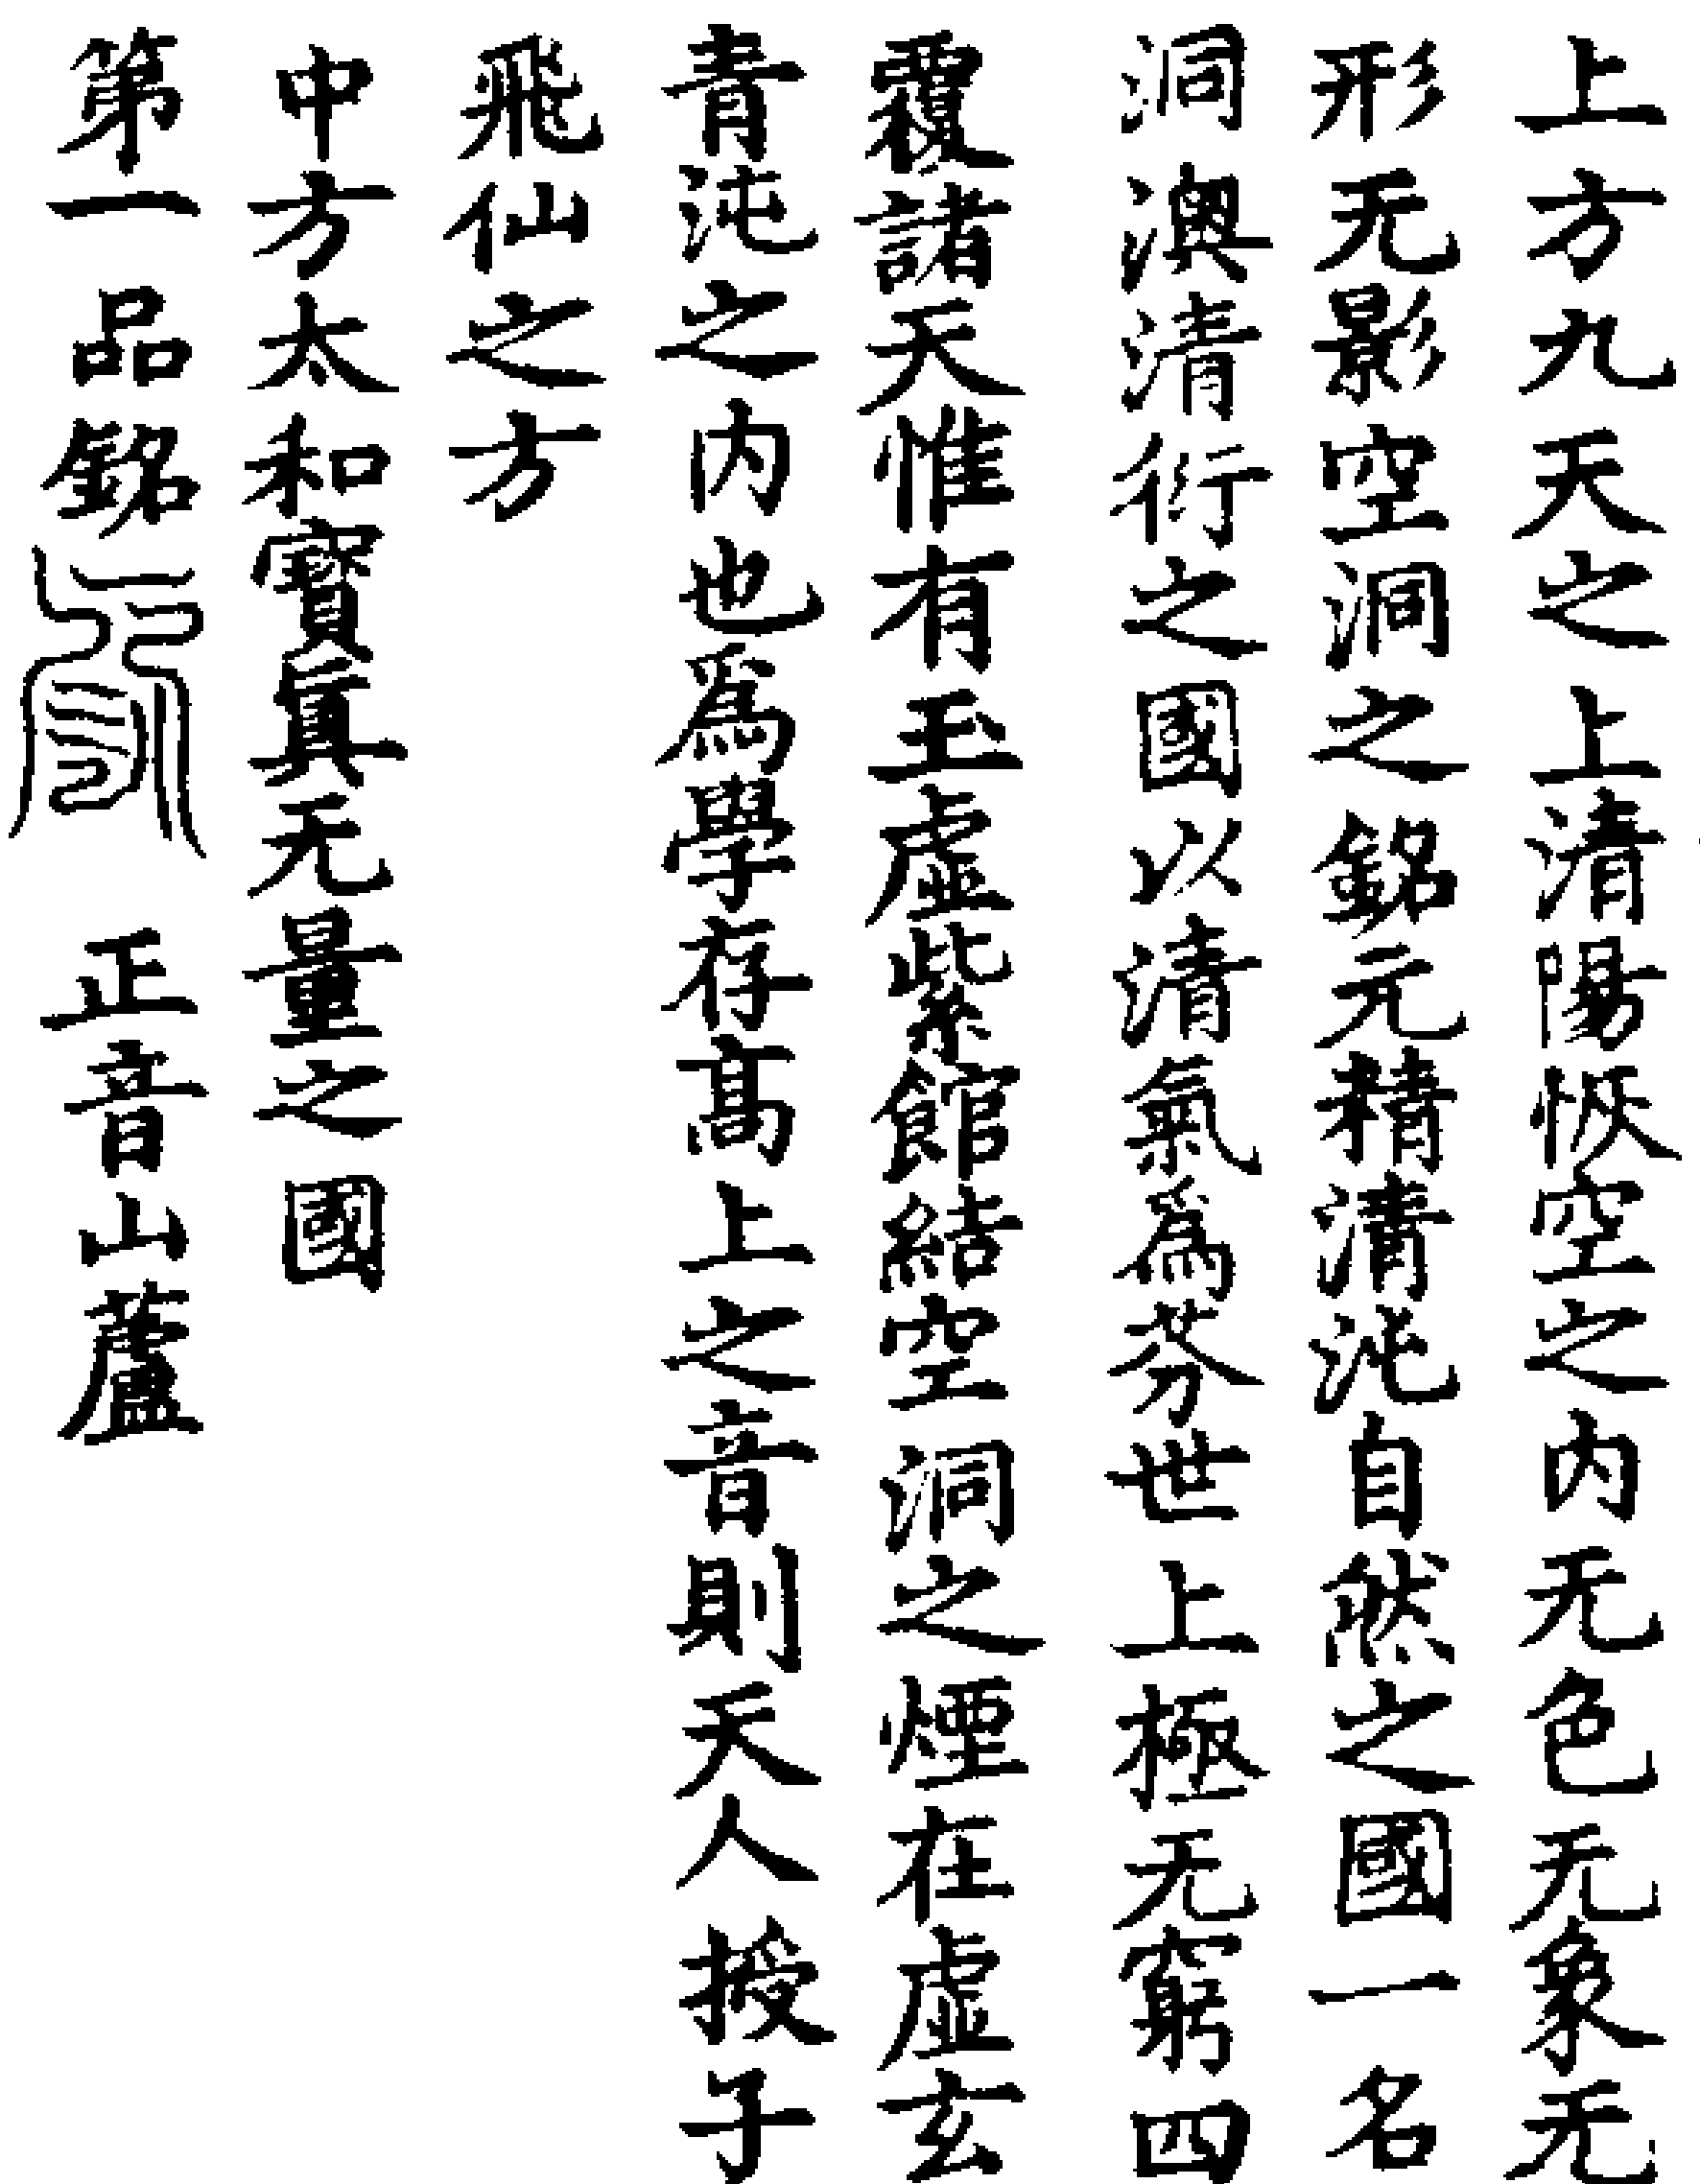 上方九天之上清陽恢空之内无色无象无
形无影空洞之銘元精清沌自然之國一名
洞澳清衍之國以清氣爲芬世上極无窮四
覆諸天惟有玉虛紫館結空洞之煙在虛玄
青沌之内也爲學存髙上之音則天人授子
飛仙之方
中方太和寳眞无量之國
第一品銘 正音山蘆